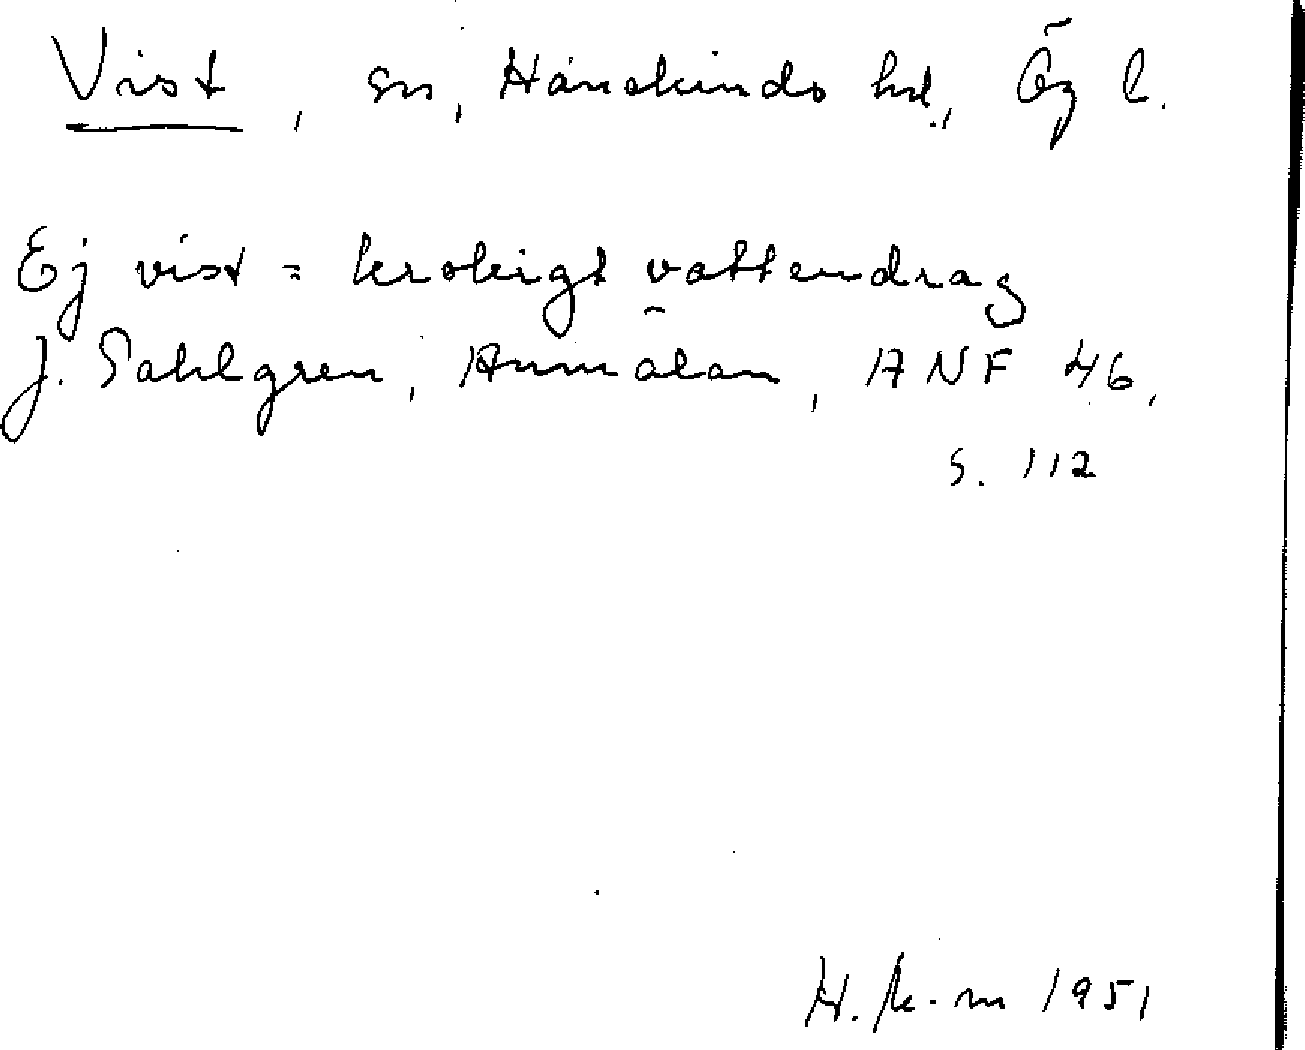 Vist, sn, Hanekinds hd., Ög l.
Ej vist = krokigt vattendrag
J. Sahlgren, Anmälan, ANF 46,
s. 112
H. k-m 1951